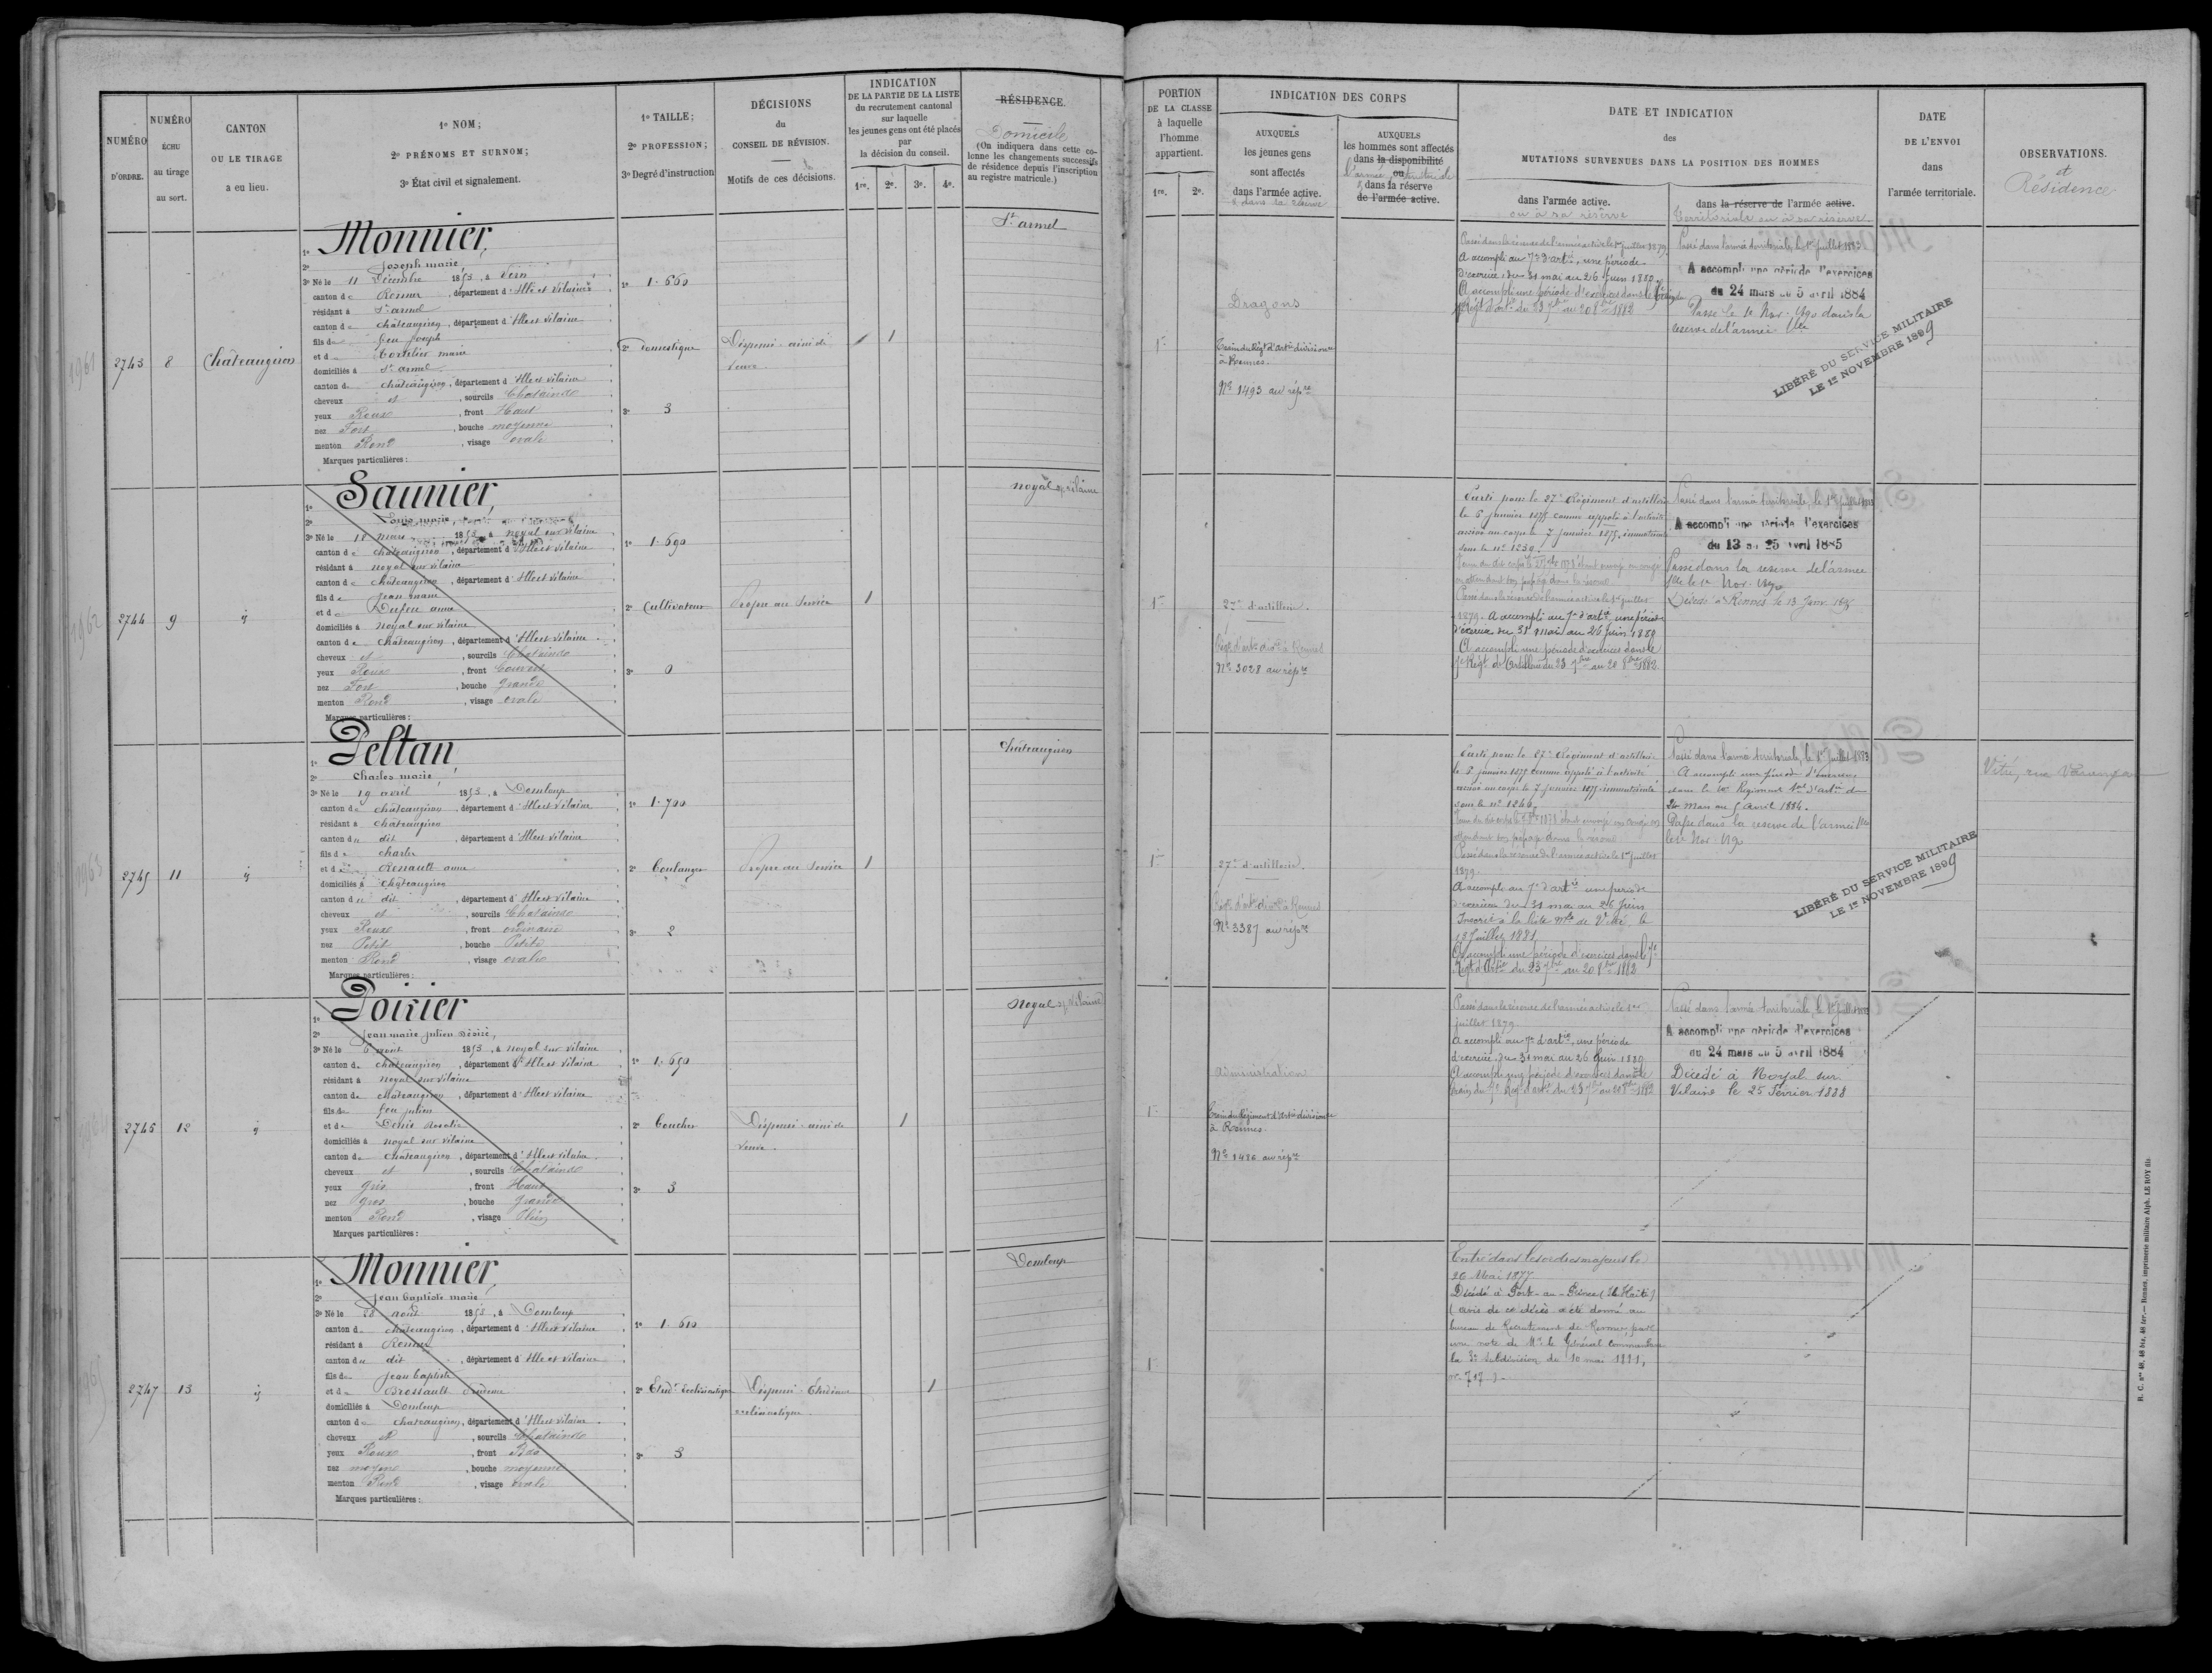 NUMÉRO D'ORDRE.
NUMÉRO ÉCHU au tirage au sort.
CANTON OU LE TIRAGE a eu lieu.
1º NOM;
2º PRÉNOMS ET SURNOM;
3º État civil et signalement.
1º TAILLE;
2º PROFESSION;
3º Degré d'instruction
DÉCISIONS
du
CONSEIL DE RÉVISION.
Motifs de ces décisions.
INDICATION
DE LA PARTIE DE LA LISTE
du recrutement cantonal
sur laquelle
les jeunes gens ont été placés
par
la décision du conseil.
1re. 2e. 3e. 4e.
RÉSIDENCE.
Domicile
(On indiquera dans cette co-
lonne les changements successifs
de résidence depuis l'inscription
au registre matricule.)
1961
2743
8
Châteaugiron
1º Monnier,
2º Joseph marie
3º Né le 11 Décembre 1853, à Vern
canton de Rennes, département d'Ille et Vilaine
résidant à St armel
canton de châteaugiron, département d'Ille et Vilaine
fils de feu Joseph
et d marie
domiciliés à St armel
canton de châteaugiron, département d'Ille et Vilaine
cheveux et, sourcils Chatains
yeux Roux, front Haut
nez Fort, bouche moyenne
menton Rond, visage ovale
Marques particulières:
1º 1.660
2º Domestique
3º 3
Dispensé aîné de
veuve
1
St armel
1962
2744
9
id
1º Saunier,
2º Louis marie
3º Né le 18 mars 1853, à noyal sur vilaine
canton de châteaugiron, département d'Ille et Vilaine
résidant à noyal sur vilaine
canton de châteaugiron, département d'Ille et Vilaine
fils de Jean marie
et de Dufeu anne
domiciliés à noyal sur vilaine
canton de châteaugiron, département d'Ille et Vilaine
cheveux et, sourcils Chatains
yeux Roux, front Couvert
nez Fort, bouche grande
menton Rond, visage ovale
Marques particulières:
1º 1.690
2º Cultivateur
3º 0
Propre au Service
1
noyal s/ vilaine
1963
2745
11
id
1º Peltan,
2º Charles marie
3º Né le 19 avril 1853, à Domloup
canton de châteaugiron, département d'Ille et Vilaine
résidant à châteaugiron
canton du dit, département d'Ille et Vilaine
fils de charles
et de Renault anne
domiciliés à châteaugiron
canton du dit, département d'Ille et Vilaine
cheveux et, sourcils Chatains
yeux Roux, front ordinaire
nez Petit, bouche Petite
menton Rond, visage ovale
Marques particulières:
1º 1.700
2º boulanger
3º 2
Propre au Service
1
châteaugiron
1964
2746
12
id
1º Poirier
2º Jean marie julien désiré,
3º Né le 6 aout 1853, à noyal sur vilaine
canton de châteaugiron, département d'Ille et Vilaine
résidant à noyal sur vilaine
canton de châteaugiron, département d'Ille et Vilaine
fils de feu julien
et de Denis Rosalie
domiciliés à noyal sur vilaine
canton de châteaugiron, département d'Ille et Vilaine
cheveux et, sourcils Chatains
yeux gris, front Haut
nez gros, bouche grande
menton Rond, visage Plein
Marques particulières:
1º 1.650
2º boucher
3º 3
Dispensé aîné de
veuve
1
noyal s/ vilaine
1965
2747
13
id
1º Monnier,
2º Jean baptiste marie
3º Né le 28 aout 1853, à Domloup
canton de châteaugiron, département d'Ille et Vilaine
résidant à Rennes
canton du dit, département d'Ille et Vilaine
fils de Jean baptiste
et de Brossault
domiciliés à Domloup
canton de châteaugiron, département d'Ille et Vilaine
cheveux et, sourcils Chatains
yeux Roux, front Bas
nez moyen, bouche moyenne
menton Rond, visage ovale
Marques particulières:
1º 1.610
2º Etudt Ecclésiastique
3º 3
Dispensé Étudiant
ecclésiastique
1
Domloup
PORTION
DE LA CLASSE
à laquelle
l'homme
appartient.
1re. 2e.
INDICATION DES CORPS
AUXQUELS
les jeunes gens
sont affectés
dans l'armée active.
& dans la réserve
AUXQUELS
les hommes sont affectés
dans la disponibilité
ou
l'armée territoriale
& dans la réserve
de l'armée active.
DATE ET INDICATION
des
MUTATIONS SURVENUES DANS LA POSITION DES HOMMES
dans l'armée active.
ou à sa réserve
dans la réserve de l'armée active.
Territoriale ou à sa réserve
DATE
DE L'ENVOI
dans
l'armée territoriale.
OBSERVATIONS.
et
Résidence
1re
Dragons
Train du Régt d'artie divisionre
à Rennes.
No 1493 au répre
Passé dans la réserve de l'armée active le 1er juillet 1879.
A accompli au 7e d'artie, une période
d'exercice du 31 mai au 26 Juin 1880.
A accompli une période d'exercices dans le train du
7e Régt d'artie du 23 7bre au 20 8bre 1882
Passé dans l'armée territoriale, le 1er juillet 1883
A accompli une période d'exercices
du 24 mars au 5 avril 1884
Passé le 1e Nov. 1890 dans la
reserve de l'armée tle
LIBÉRÉ DU SERVICE MILITAIRE
LE 1er NOVEMBRE 1899
1re
27e d'artillerie.
Régt d'artie divre à Rennes
No 3028 au répre
Parti pour le 27e Régiment d'artillerie
le 6 janvier 1875 comme appelé à l'activité
arrivé au corps le 7 janvier 1875, immatriculé
sous le no 1239.
en attendant son passage dans la réserve
Passé dans la réserve de l'armée active le 1er juillet
1879. A accompli au 7e d'artie une période
d'exercice du 31 mai au 26 Juin 1880
A accompli une période d'exercices dans le
7e Régt d'Artillerie du 23 7bre au 20 8bre 1882.
Passé dans l'armée territoriale, le 1er juillet 1883
A accompli une période d'exercices
du 13 au 25 avril 1885
Passé dans la reserve de l'armée
tle le 1e Nov. 1890
Décédé à Rennes le 13 Janv
1re
27e d'artillerie.
Régt d'artie divre à Rennes
No 3387 au répre
Parti pour le 27e Régiment d'artillerie
le 6 janvier 1875 comme appelé à l'activité
arrivé au corps le 7 janvier 1875, immatriculé
sous le no 1246.
attendant son passage dans la réserve
Passé dans la réserve de l'armée active le 1er juillet
1879.
A accompli au 7e d'artie une période
d'exercice du 31 mai au 26 Juin
Inscrit à la liste mle de Vitré le
13 Juillet 1881
A accompli une période d'exercices dans le 7e
Régt d'Artie du 23 7bre au 20 8bre 1882
Passé dans l'armée territoriale, le 1er juillet 1883
A accompli une période d'exercices
dans le 10e Régiment tal d'artie du
24 Mars au 5 Avril 1884.
Passé dans la reserve de l'armée tle
le 1er Nov.
LIBÉRÉ DU SERVICE MILITAIRE
LE 1er NOVEMBRE 1899
Vitré, rue
1re
administration
Train du Régiment d'Artie divisionre
à Rennes.
No 1486 au répre
Passé dans la réserve de l'armée active le 1er
juillet 1879
A accompli au 7e d'artie, une période
d'exercice du 31 mai au 26 Juin 1880
A accompli une période d'exercices dans le
train du 7e Régt d'artie du 23 7bre au 20 8bre 1882
Passé dans l'armée territoriale, le 1er juillet 1883
A accompli une période d'exercices
du 24 mars au 5 avril 1884
Décédé à Noyal sur
Vilaine le 25 Février 1888
1
Entré dans les ordres majeurs le
26 Mai 1877
Décédé à Port-au-Prince (Haïti)
(avis de ce décès a été donné au
bureau de Recrutement de Rennes par
une note de Mr le Général Commandant
la 3e Subdivision du 10 mai 1881,
no 717).
R. C. nos 48, 48 bis, 48 ter.— Rennes, imprimerie militaire Alph. LE ROY fils